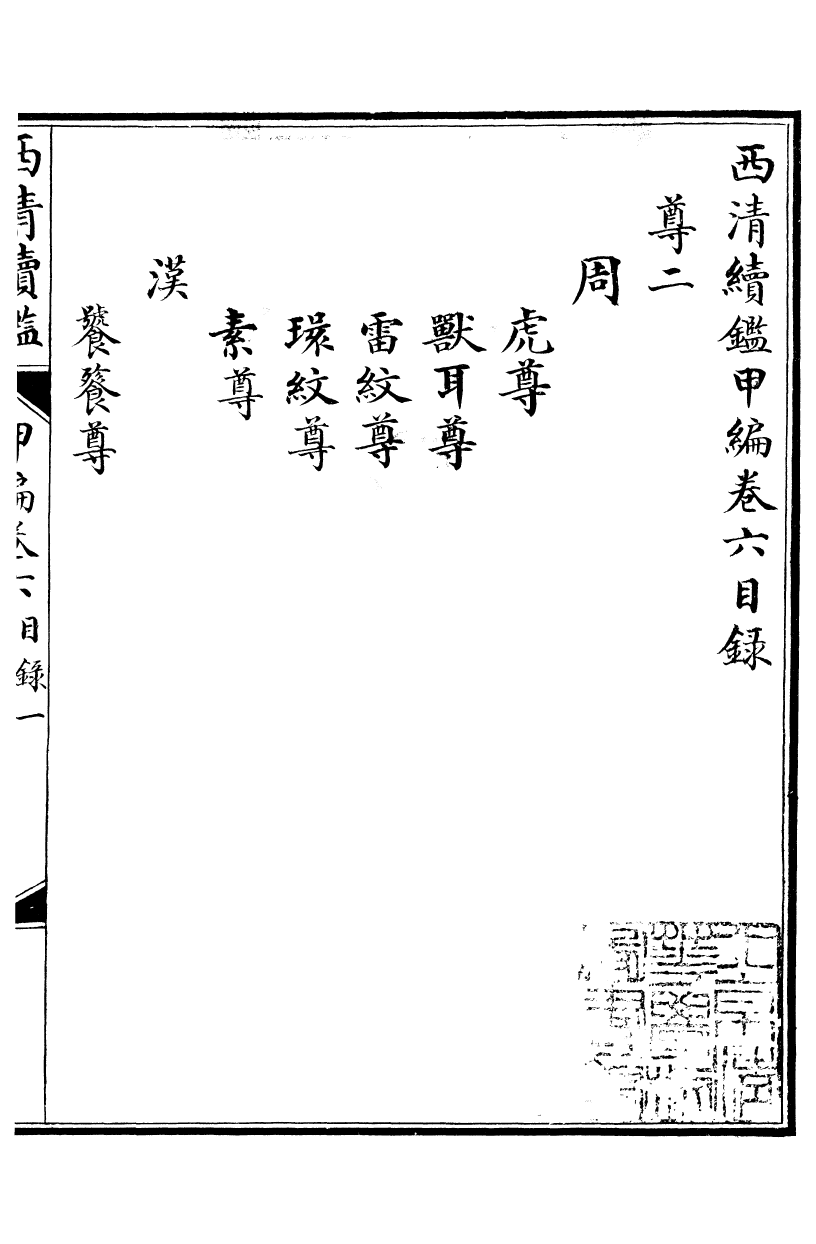 西清續鑑甲編卷六目錄
尊二
周
虎尊
獸耳尊
雷紋尊
環紋尊
素尊
漢
饕餮尊
西清續鑑 甲編卷六目錄 一